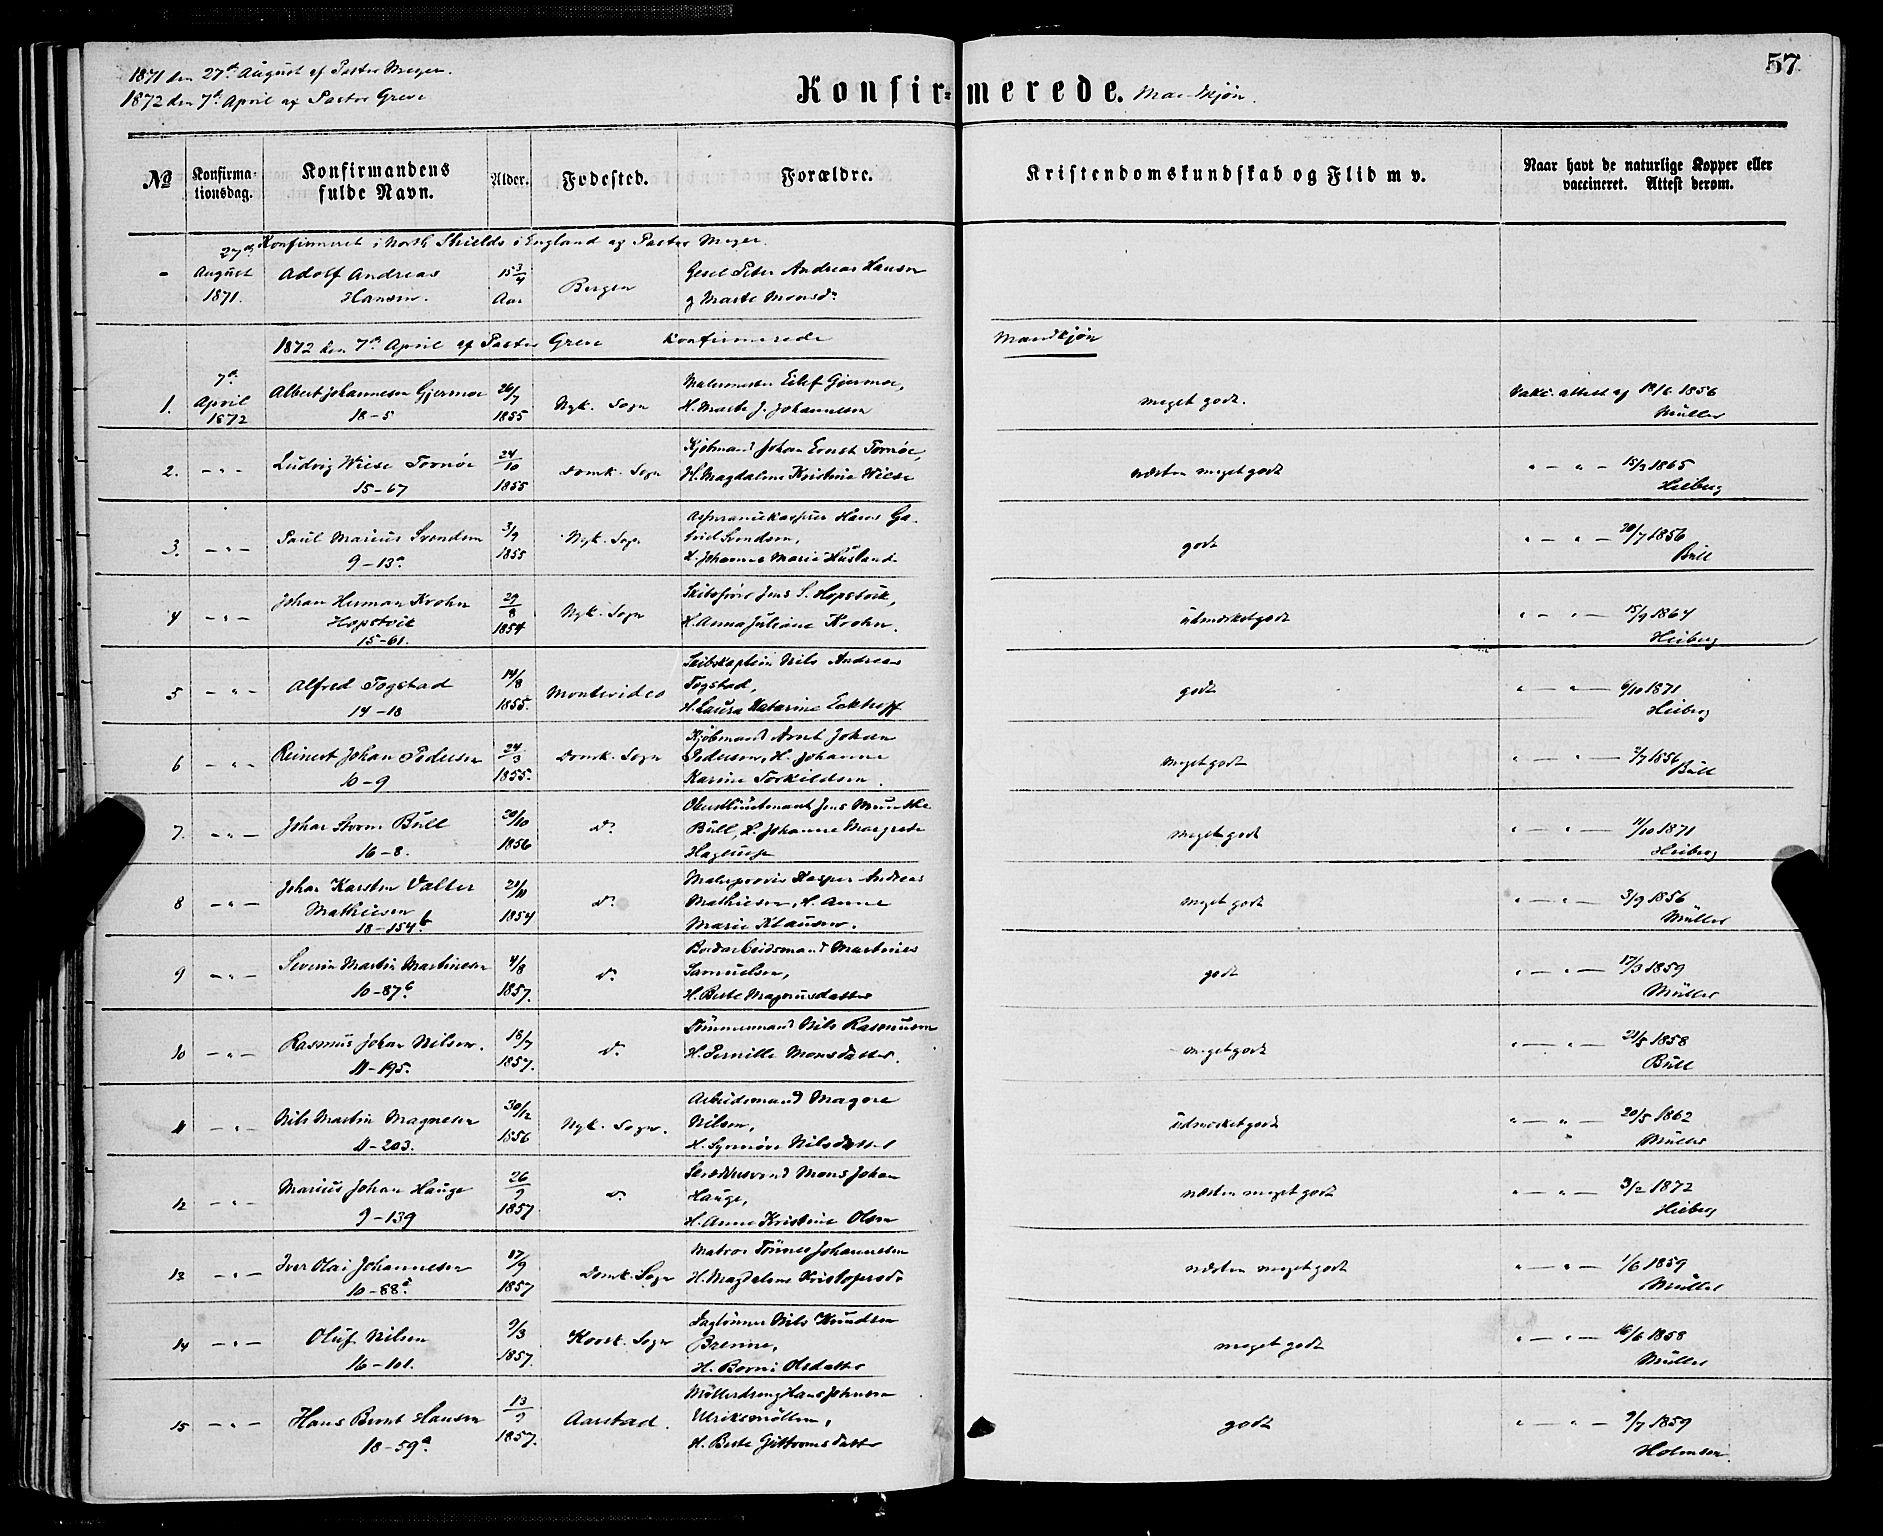 57
1871 den 27de August af Pastor Meyer.
1872 den 7de April af Pastor Greve
Konfirmerede. Mandkjøn.
No
Konfirmationsdag.
Konfirmandens fulde Navn.
Alder.
Fødested.
Forældre.
Kristendomskundskab og Flid m v.
Naar havt de naturlige Kopper eller vaccineret. Attest derom.
Konfirmeret i North Shields i England af Pastor Meyer.
- 27de August 1871. Adolf Andreas Hansen. 15 3/4 Aar Bergen Gesel Peter Andreas Hansen og Marte Monsdr
1872 den 7de April af Pastor Greve Konfirmerede Mandkjøn
1. 7de April 1872 Albert Johannesen Gjermoe 18-5 26/7 1855 Nyk. Sogn Malermester Eilef Gjermoe, H. Marte J. Johannesen meget godt. Vakc. attest af 18/6 1856 Müller
2. -"- Ludvig Wiese Tornøe 15-67 24/10 1855 Domk. Sogn Kjøbmand Johan Ernst Tornøe, H. Magdalene Kristine Wiese næsten meget godt " - " - 15/9 1865 Heiberg
3. -"- Paul Marius Svendsen 9-13a 3/9 1855 Nyk. Sogn Hans Ga- Svendsen, H. Johanne Marie Husland godt " - " - 20/7 1856 Bull
4 -"- Johan Herman Krohn Hopstvik 15-61. 29/8 1854 Nyk. Sogn Jens S. Hopstvik, H. Anna Juliane Krohn. udmerket godt " - " - 15/9 1864 Heiberg
5 -"- Alfred Togstad 14-18 14/8 1855. Montevideo Skibskaptein Nils Andreas Togstad, H. Laura Katarine Ecktroff godt " - " - 6/10 1871 Heiberg
6 -"- Reinert Johan Pedersen 10-9 24/3 1855. Domk. Sogn Kjøbmand Arnt Johan Pedersen, H. Johanne Karine Torkildsen. meget godt " - " - 3/7 1856 Bull
7. -"- Johan Storm Bull 16-8. 20/10 1856 do Oberstlieutenant Jens Munthe Bull, H. Johanne Margrete Hagerup meget godt " - " - 11/10 1871 Heiberg
8 -"- Johan Karsten Valter Mathiesen 18-154b 21/11 1854 do Kasper Andreas Mathiesen, H. Anne Marie Klausen. meget godt " - " - 3/9 1856 Müller
9 -"- Severin Martin Martinesen 10-87b 4/8 1857. do Bordarbeidsmand Martinus Samuelsen, H. Berte Magnusdatter godt " - " - 17/3 1859 Müller
10 -"- Rasmus Johan Nilsen. 11-195. 18/7 1857. do Tømmermand Nils Rasmussen H. Pernille Monsdatter. meget godt " - " - 21/5 1858 Bull
11 -"- Nils Martin Magnesen 11-203. 30/12 1856 Nyk. Sogn. Arbeidsmand Magne Nilsen, H. Synnøve Nilsdatter udmerket godt " - " - 20/5 1862 Müller
12 -"- Marius Johan Hauge 9-139 26/9 1857 do Skræddersvend Mons Johan Hauge, H. Anne Kristine Olsen næsten meget godt " - " - 3/2 1872 Heiberg
13 -"- Iver Olai Johannesen 10-88a 17/9 1857 Domk. Sogn Matros Tønnes Johannesen H. Magdalene Kristofersdr næsten meget godt " - " - 1/6 1859 Müller
14 -"- Oluf Nilsen 16-101. 9/3 1857. Korsk. Sogn Daglønner Nils Knudsen Brenne, H. Borni Olsdatter meget godt " - " - 16/6 1858 Müller
15 -"- Hans Bernt Hansen 18-59a 13/9 1857. Aarstad. Møllerdreng Hans Johnsen Ulrikesmøllen, H. Berte Guttormsdatter godt " - " - 9/7 1859 Holmsen.